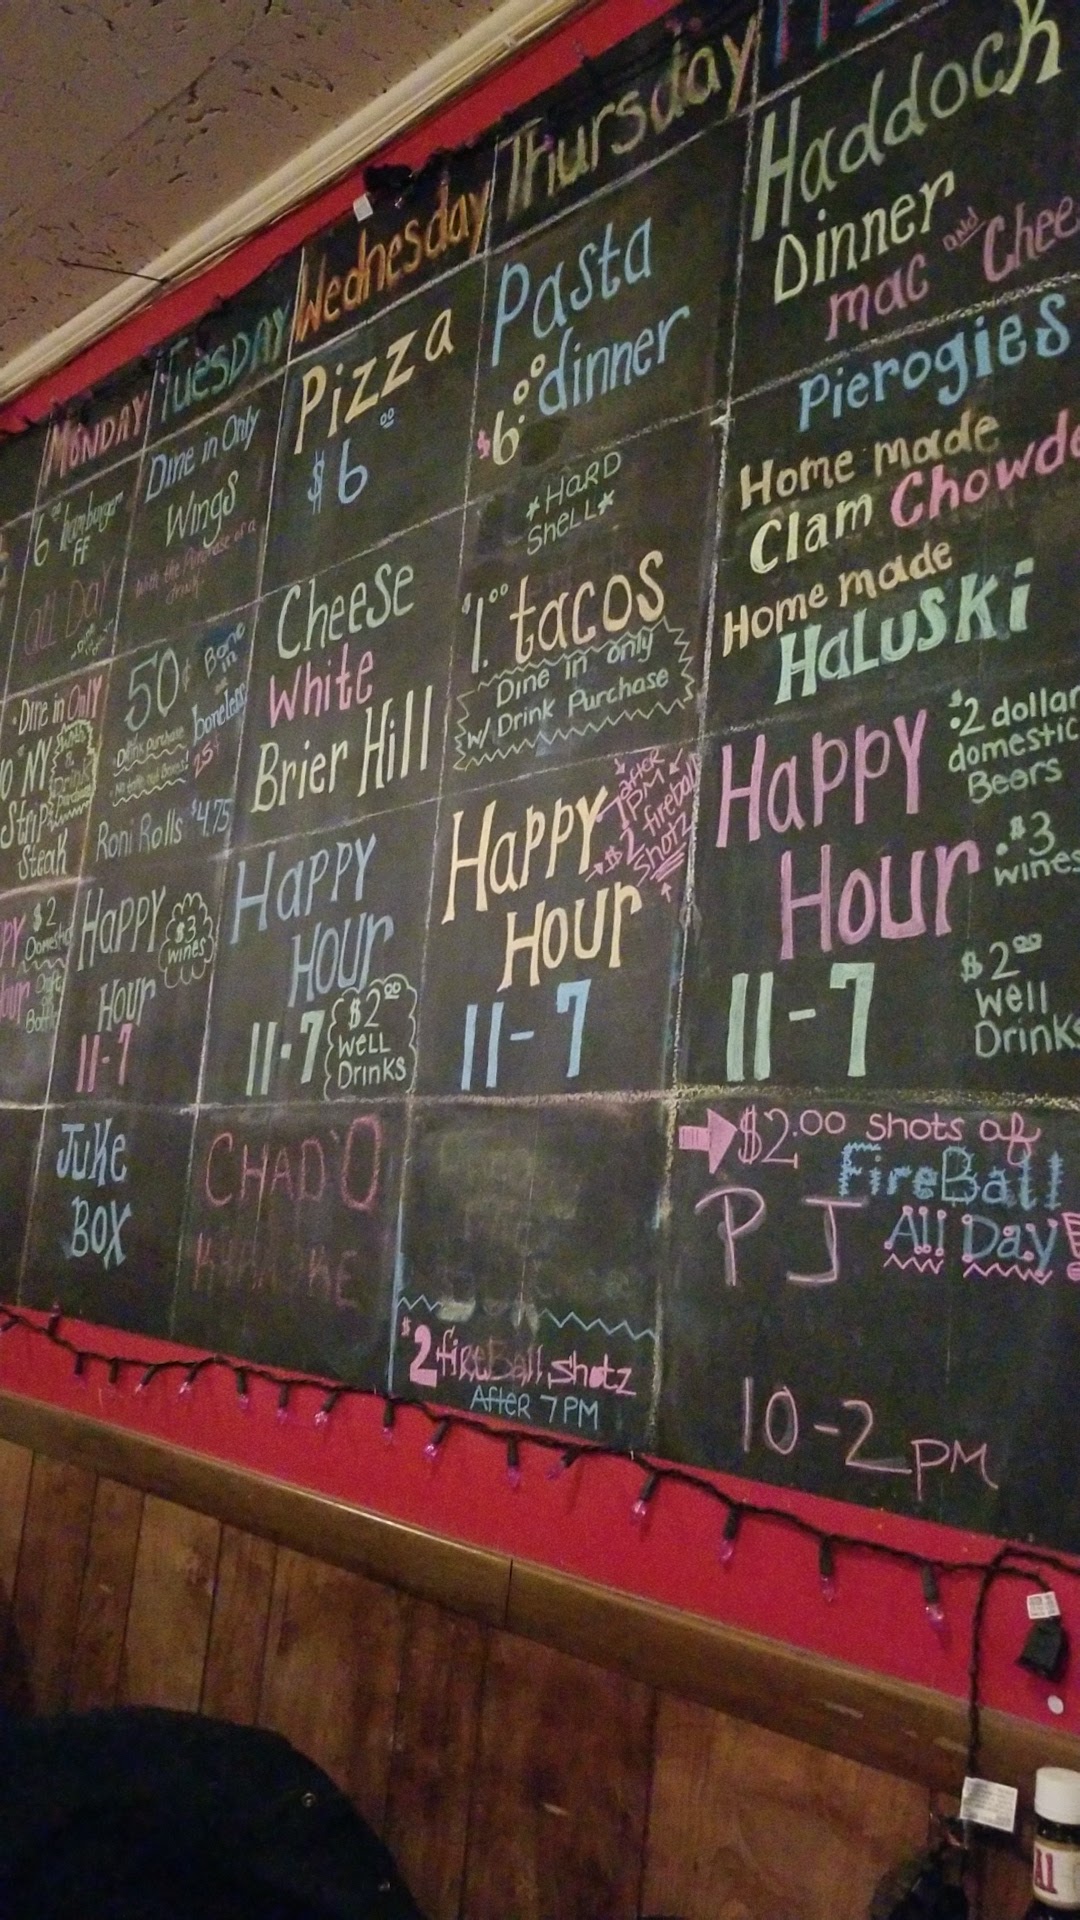 MONDAY
6 hamburger
FF
all Day
Dine in Only
NY
Strip
Steak
$2
Domestic
Juke
Box
Tuesday
Dine in Only
Wings
with the Purchase of a
drink
50¢ Bone
in
boneless
Drink purchase
25¢
Roni Rolls $4.75
Happy
Hour
$3
wines
11-7
Wednesday
Pizza
$6.00
Cheese
White
Brier Hill
Happy
Hour
11-7
$2.00
well
Drinks
CHAD'O
Thursday
Pasta
dinner
$6.00
*HARD
Shell*
$1.00 tacos
Dine in only
w/ Drink Purchase
Happy
Hour
After
7PM
$2 fireball
Shotz
11-7
$2 fireBall Shotz
After 7PM
Haddock
Dinner
mac and Chee
Pierogies
Home made
Clam Chowd
Home made
Haluski
Happy
Hour
11-7
$2 dollar
domestic
Beers
$3
wines
$2.00
well
Drinks
$2.00 shots of
FireBall
All Day!
PJ
10-2 pm
A1